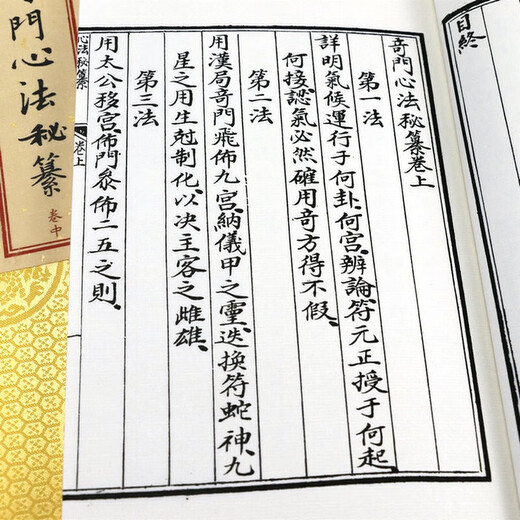 目終
奇門心法秘纂卷上
第一法
詳明氣候運行于何卦、何宮、辨論符元正授于何起、
何接、認氣必然確用奇方得不假、
第二法
用漢局奇門、飛佈九宮、納儀甲之靈、迭換符蛇神、九
星之用生尅制化、以决主客之雌雄、
第三法
用太公移宮、佈門、叅佈二五之則、
心法秘纂
卷上
門心法秘纂
卷中